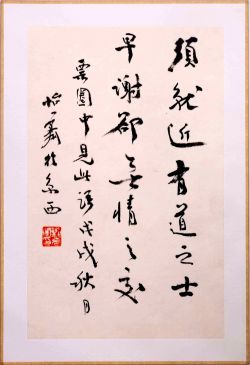 須就近有道之士
早謝卻無情之交
雲中見此語戊戌秋月
怡於京西